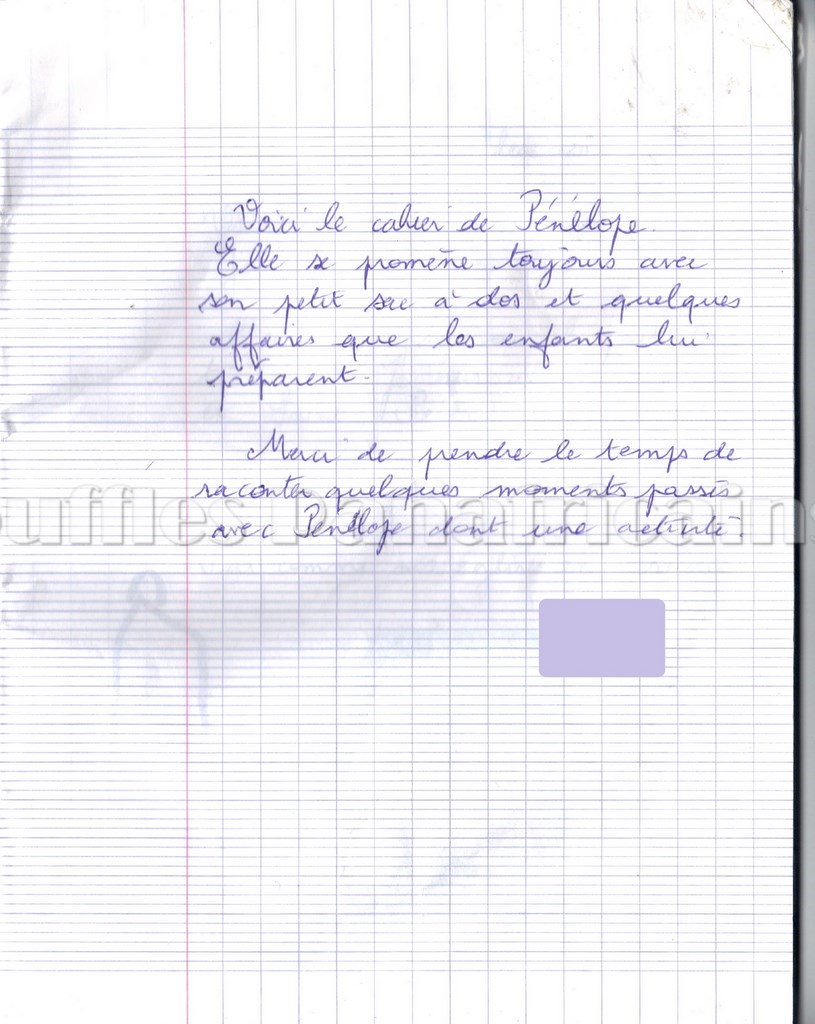 Voici le cahier de Pénélope.
Elle se promène toujours avec
son petit sac à dos et quelques
affaires que les enfants lui
préparent.
Merci de prendre le temps de
raconter quelques moments passés
avec Pénélope dont une activité.
ouffles Panafricains